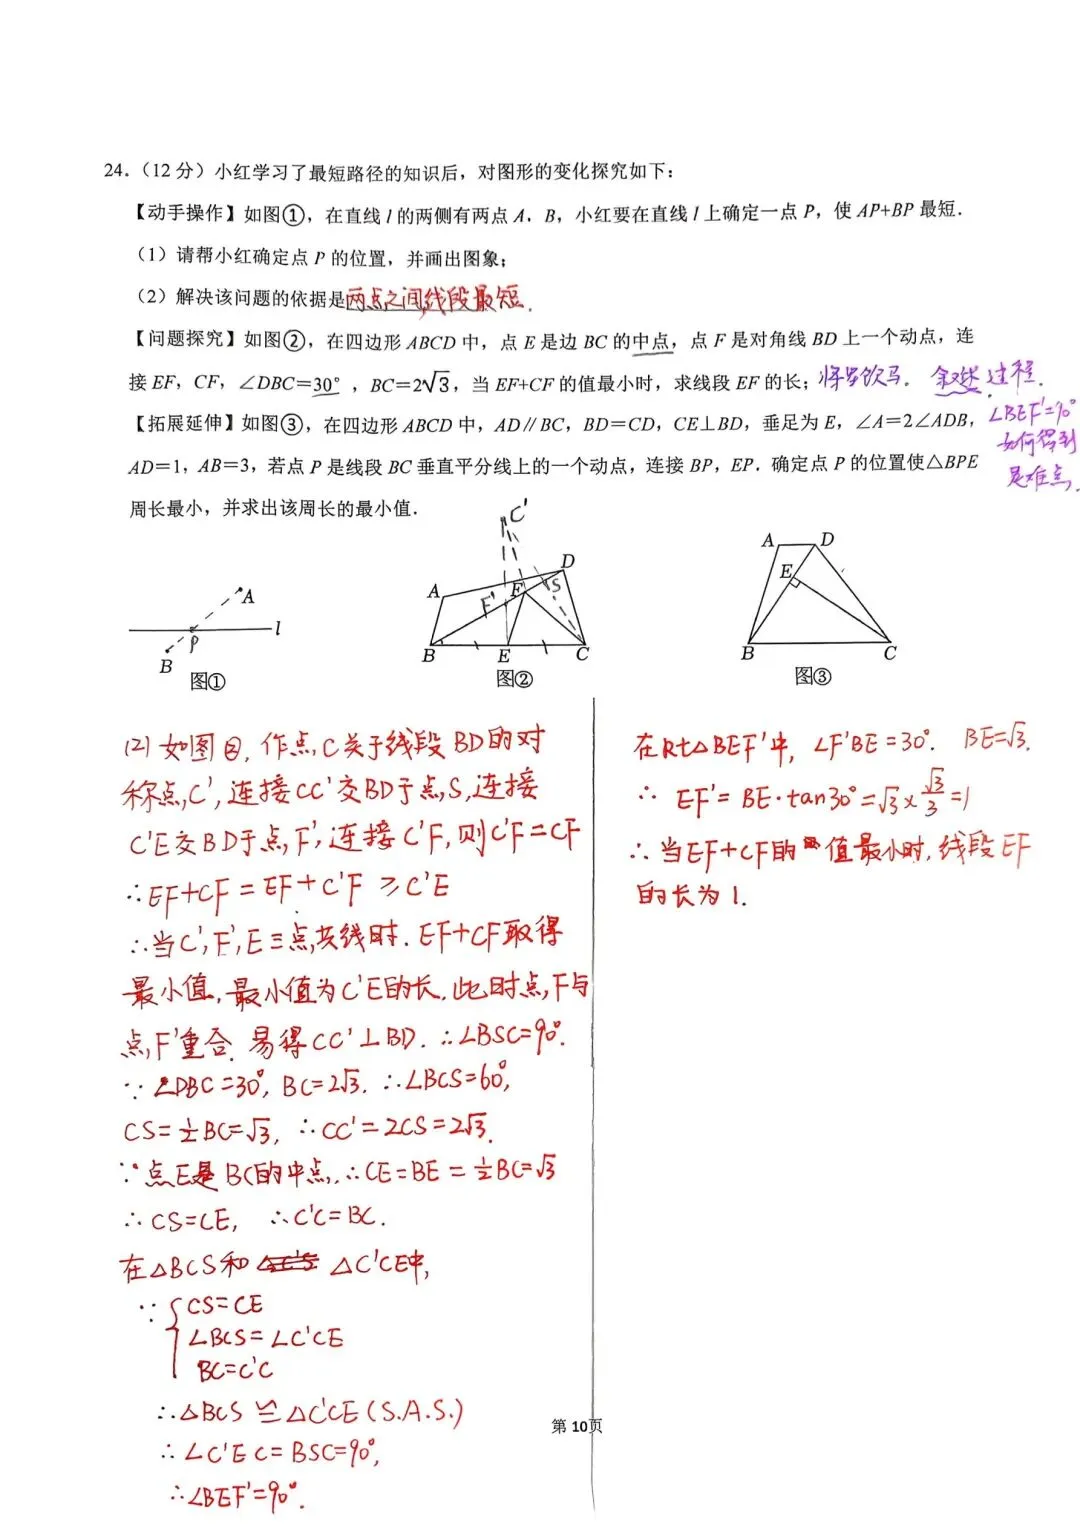 24.（12 分）小红学习了最短路径的知识后，对图形的变化探究如下：
【动手操作】如图①，在直线 l 的两侧有两点 A，B，小红要在直线 l 上确定一点 P，使 AP+BP 最短．
（1）请帮小红确定点 P 的位置，并画出图象；
（2）解决该问题的依据是两点之间,线段最短.
【问题探究】如图②，在四边形 ABCD 中，点 E 是边 BC 的中点，点 F 是对角线 BD 上一个动点，连
接 EF，CF，∠DBC=30°，BC=2√3，当 EF+CF 的值最小时，求线段 EF 的长；将军饮马. 叙述过程.
【拓展延伸】如图③，在四边形 ABCD 中，AD∥BC，BD=CD，CE⊥BD，垂足为 E，∠A=2∠ADB，
∠BEF'=90°
如何得到
是难点.
AD=1，AB=3，若点 P 是线段 BC 垂直平分线上的一个动点，连接 BP，EP．确定点 P 的位置使△BPE
周长最小，并求出该周长的最小值．
A
l
P
B
图①
C'
D
A
F
S
F'
B
E
C
图②
A
D
E
B
C
图③
(2) 如图②, 作点C关于线段BD的对
称点C', 连接CC'交BD于点S,连接
C'E交BD于点F',连接C'F,则C'F=CF
∴EF+CF=EF+C'F≥C'E
∴当C',F',E三点共线时. EF+CF取得
最小值,最小值为C'E的长.此时点F与
点F'重合. 易得CC'⊥BD. ∴∠BSC=90°.
∵∠DBC=30°, BC=2√3. ∴∠BCS=60°,
CS=½BC=√3, ∴CC'=2CS=2√3.
∵点E是BC的中点,∴CE=BE=½BC=√3
∴CS=CE, ∴C'C=BC.
在△BCS和△C'CE中,
∵{CS=CE
∠BCS=∠C'CE
BC=C'C
∴△BCS≌△C'CE(S.A.S.)
∴∠C'EC=BSC=90°,
∴∠BEF'=90°.
在Rt△BEF'中, ∠F'BE=30°. BE=√3.
∴ EF'=BE·tan30°=√3×√3/3=1
∴当EF+CF的值最小时,线段EF
的长为1.
第 10页